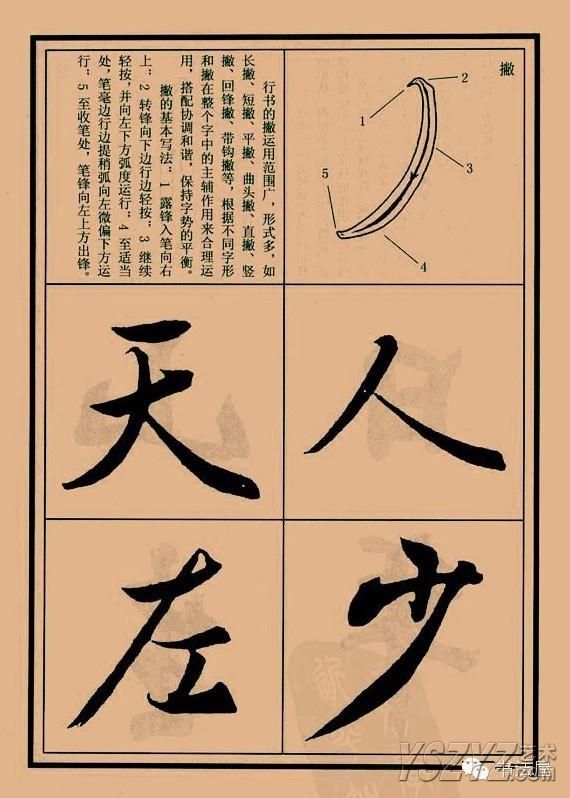 撇
1
2
3
4
5
行书的撇运用范围广，形式多，如
长撇、短撇、平撇、曲头撇、直撇、竖
撇、回锋撇、带钩撇等，根据不同字形
和撇在整个字中的主辅作用来合理运
用，搭配协调和谐，保持字势的平衡。
撇的基本写法：1 露锋入笔向右
上；2 转锋向下边行边轻按；3 继续
轻按，并向左下方弧度运行；4 至适当
处，笔毫边行边提稍弧向左微偏下方运
行；5 至收笔处，笔锋向左上方出锋。
人
天
少
左
YSZYZ艺术